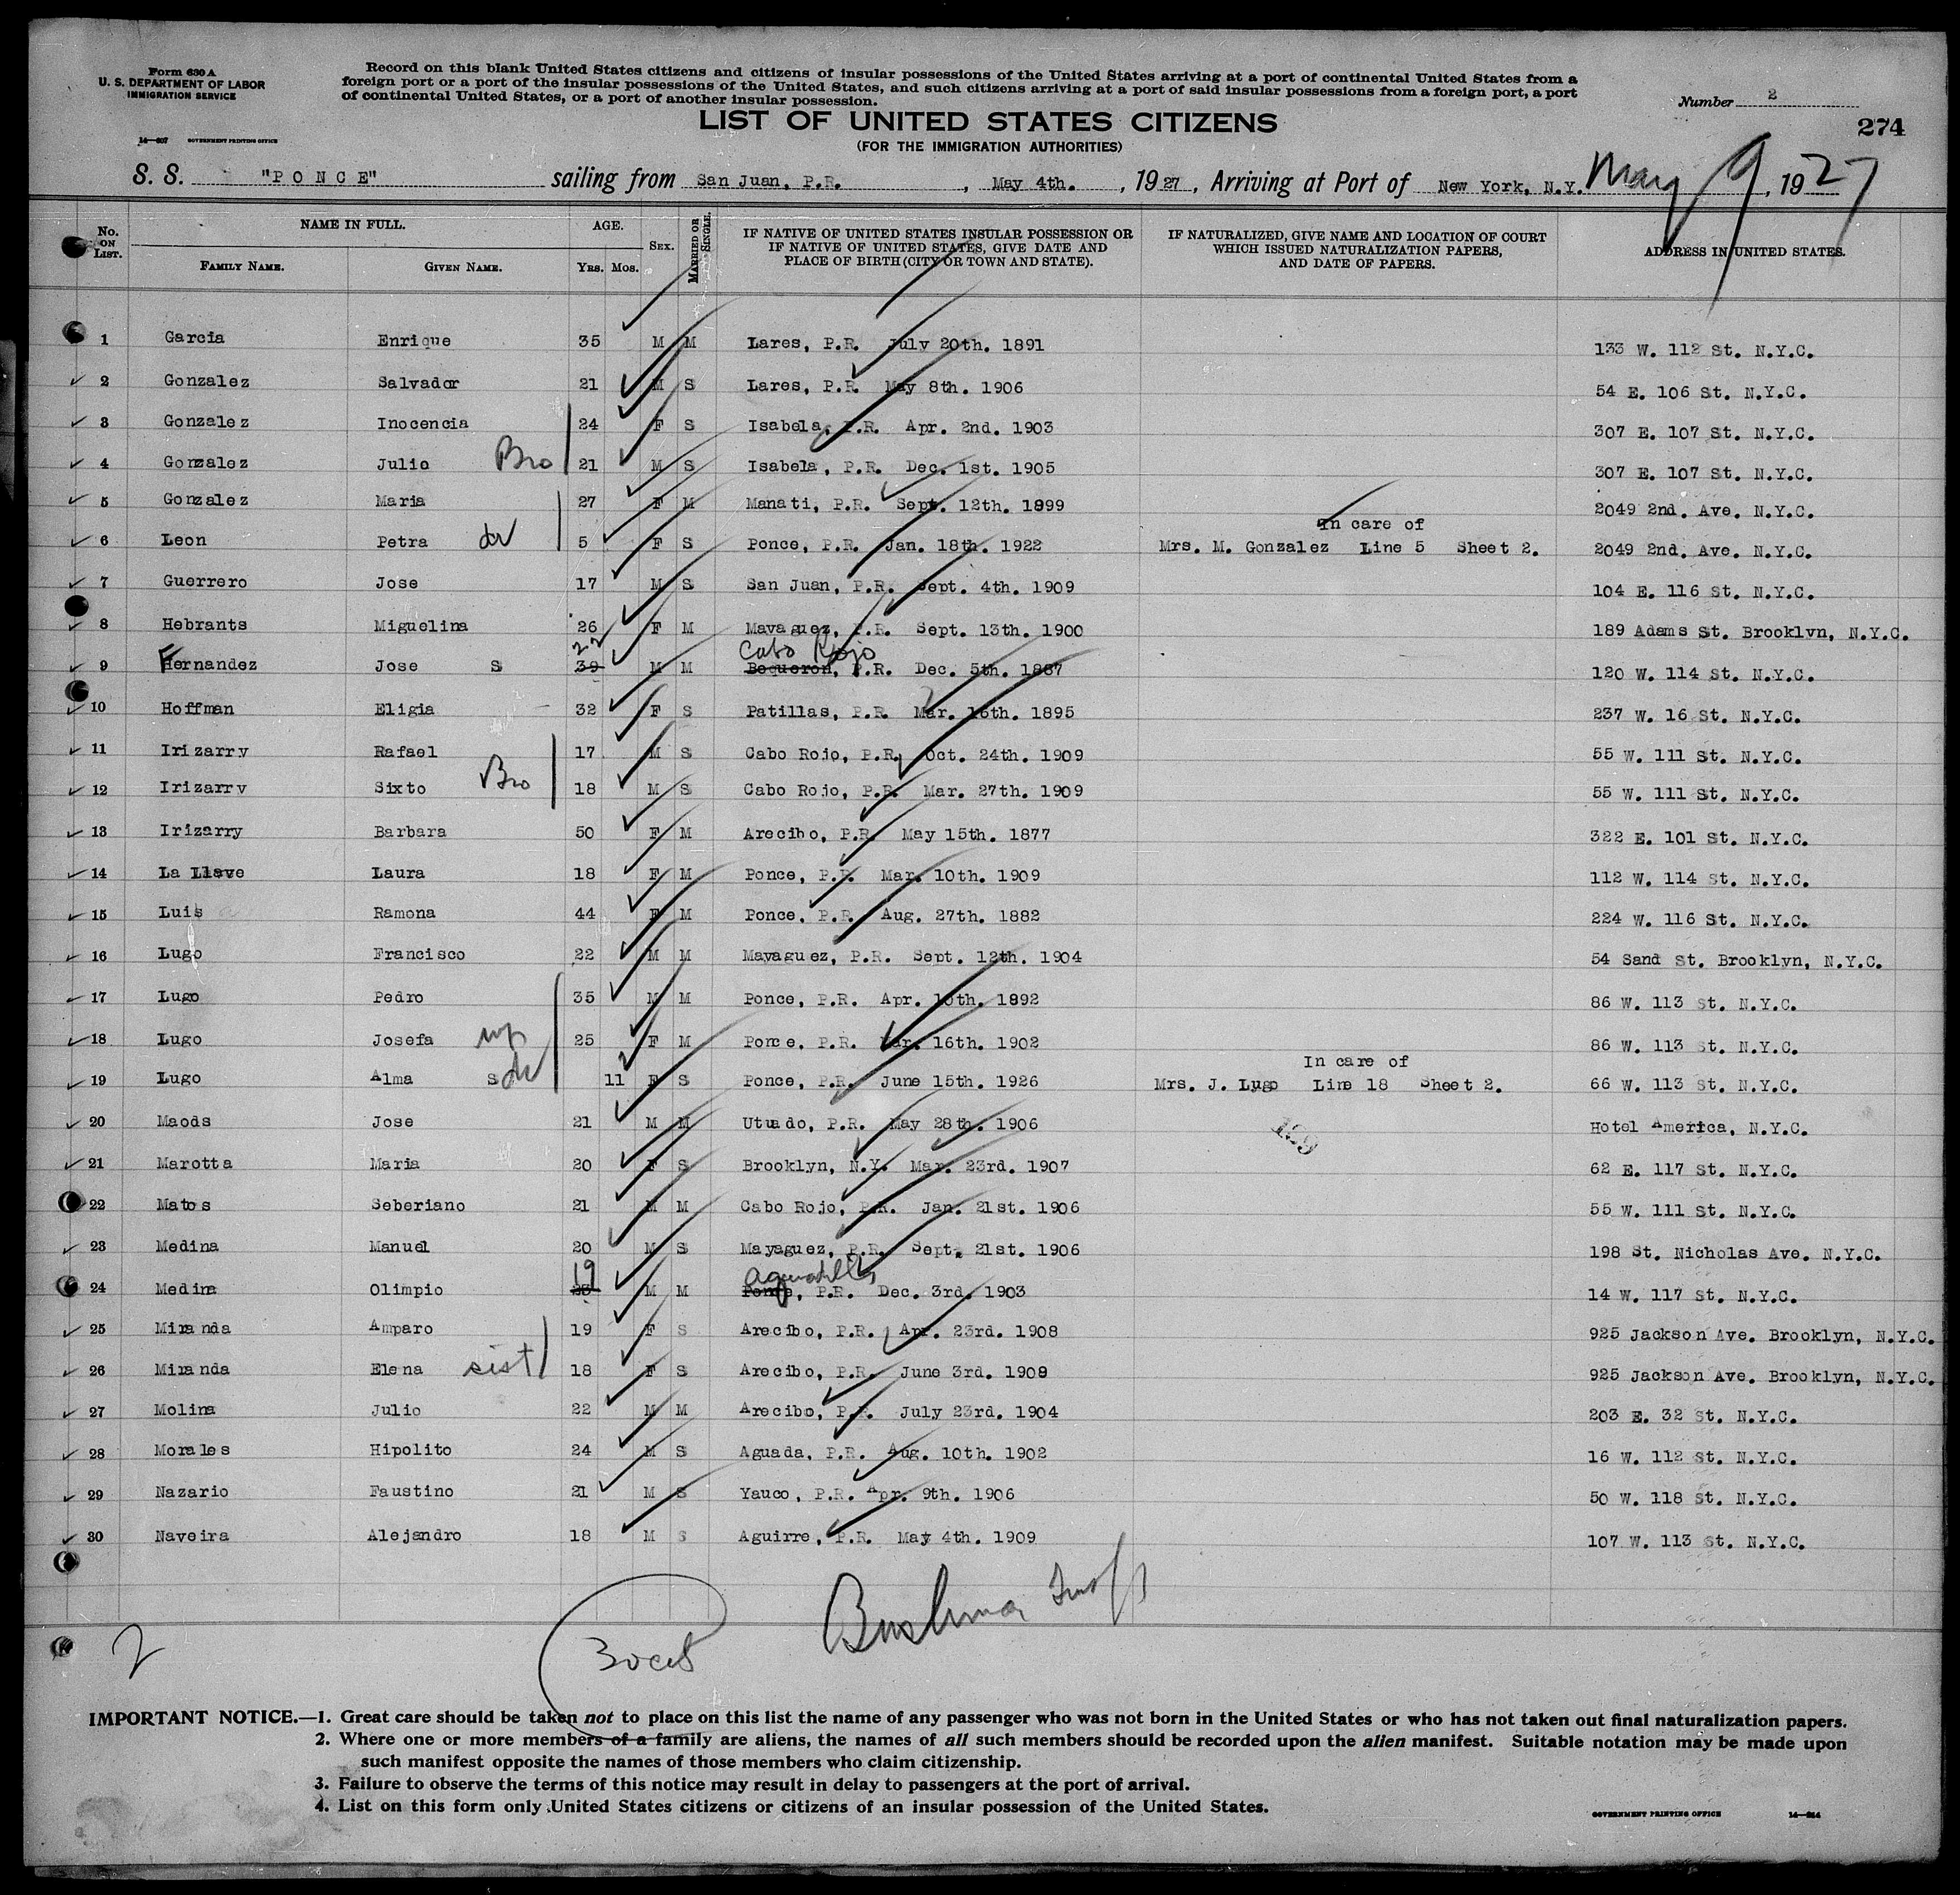 Form 630 A
U. S. DEPARTMENT OF LABOR
IMMIGRATION SERVICE
14—607 GOVERNMENT PRINTING OFFICE
Record on this blank United States citizens and citizens of insular possessions of the United States arriving at a port of continental United States from a
foreign port or a port of the insular possessions of the United States, and such citizens arriving at a port of said insular possessions from a foreign port, a port
of continental United States, or a port of another insular possession.
Number 2
274
LIST OF UNITED STATES CITIZENS
(FOR THE IMMIGRATION AUTHORITIES)
S. S. "PONCE" sailing from San Juan, P.R., May 4th., 1927, Arriving at Port of New York, N.Y. May 9, 1927
No. ON LIST. NAME IN FULL. FAMILY NAME. GIVEN NAME. AGE. YRS. MOS. SEX. MARRIED OR SINGLE. IF NATIVE OF UNITED STATES INSULAR POSSESSION OR IF NATIVE OF UNITED STATES, GIVE DATE AND PLACE OF BIRTH (CITY OR TOWN AND STATE). IF NATURALIZED, GIVE NAME AND LOCATION OF COURT WHICH ISSUED NATURALIZATION PAPERS, AND DATE OF PAPERS. ADDRESS IN UNITED STATES.
1 Garcia Enrique 35 M M Lares, P.R. July 20th. 1891 133 W. 112 St. N.Y.C.
2 Gonzalez Salvador 21 M S Lares, P.R. May 8th. 1906 54 E. 106 St. N.Y.C.
3 Gonzalez Inocencia 24 F S Isabela, P.R. Apr. 2nd. 1903 307 E. 107 St. N.Y.C.
4 Gonzalez Julio Bro 21 M S Isabela, P.R. Dec. 1st. 1905 307 E. 107 St. N.Y.C.
5 Gonzalez Maria 27 F M Manati, P.R. Sept. 12th. 1899 2049 2nd. Ave. N.Y.C.
In care of
6 Leon Petra 5 F S Ponce, P.R. Jan. 18th. 1922 Mrs. M. Gonzalez Line 5 Sheet 2. 2049 2nd. Ave. N.Y.C.
7 Guerrero Jose 17 M S San Juan, P.R. Sept. 4th. 1909 104 E. 116 St. N.Y.C.
8 Hebrants Miguelina 26 F M Mayaguez, P.R. Sept. 13th. 1900 189 Adams St. Brooklyn, N.Y.C.
22 Cabo Rojo
9 Hernandez Jose S 39 M M Boqueron, P.R. Dec. 5th. 1887 120 W. 114 St. N.Y.C.
10 Hoffman Eligia 32 F S Patillas, P.R. Mar. 16th. 1895 237 W. 16 St. N.Y.C.
11 Irizarry Rafael 17 M S Cabo Rojo, P.R. Oct. 24th. 1909 55 W. 111 St. N.Y.C.
12 Irizarry Sixto Bro 18 M S Cabo Rojo, P.R. Mar. 27th. 1909 55 W. 111 St. N.Y.C.
13 Irizarry Barbara 50 F M Arecibo, P.R. May 15th. 1877 322 E. 101 St. N.Y.C.
14 La Llave Laura 18 F M Ponce, P.R. Mar. 10th. 1909 112 W. 114 St. N.Y.C.
15 Luis Ramona 44 F M Ponce, P.R. Aug. 27th. 1882 224 W. 116 St. N.Y.C.
16 Lugo Francisco 22 M M Mayaguez, P.R. Sept. 12th. 1904 54 Sand St. Brooklyn, N.Y.C.
17 Lugo Pedro 35 M M Ponce, P.R. Apr. 10th. 1892 86 W. 113 St. N.Y.C.
18 Lugo Josefa 25 F M Ponce, P.R. Mar. 16th. 1902 86 W. 113 St. N.Y.C.
In care of
19 Lugo Alma S 11 F S Ponce, P.R. June 15th. 1926 Mrs. J. Lugo Line 18 Sheet 2. 66 W. 113 St. N.Y.C.
20 Maods Jose 21 M M Utuado, P.R. May 28th. 1906 Hotel America, N.Y.C.
21 Marotta Maria 20 F S Brooklyn, N.Y. Mar. 23rd. 1907 62 E. 117 St. N.Y.C.
22 Matos Seberiano 21 M M Cabo Rojo, P.R. Jan. 21st. 1906 55 W. 111 St. N.Y.C.
23 Medina Manuel 20 M S Mayaguez, P.R. Sept. 21st. 1906 198 St. Nicholas Ave. N.Y.C.
19 Aguadilla
24 Medina Olimpio 23 M M Ponce, P.R. Dec. 3rd. 1903 14 W. 117 St. N.Y.C.
25 Miranda Amparo 19 F S Arecibo, P.R. Apr. 23rd. 1908 925 Jackson Ave. Brooklyn, N.Y.C.
26 Miranda Elena sist 18 F S Arecibo, P.R. June 3rd. 1909 925 Jackson Ave. Brooklyn, N.Y.C.
27 Molina Julio 22 M M Arecibo, P.R. July 23rd. 1904 203 E. 32 St. N.Y.C.
28 Morales Hipolito 24 M S Aguada, P.R. Aug. 10th. 1902 16 W. 112 St. N.Y.C.
29 Nazario Faustino 21 M S Yauco, P.R. Apr. 9th. 1906 50 W. 118 St. N.Y.C.
30 Naveira Alejandro 18 M S Aguirre, P.R. May 4th. 1909 107 W. 113 St. N.Y.C.
2
IMPORTANT NOTICE.—1. Great care should be taken not to place on this list the name of any passenger who was not born in the United States or who has not taken out final naturalization papers.
2. Where one or more members of a family are aliens, the names of all such members should be recorded upon the alien manifest. Suitable notation may be made upon
such manifest opposite the names of those members who claim citizenship.
3. Failure to observe the terms of this notice may result in delay to passengers at the port of arrival.
4. List on this form only United States citizens or citizens of an insular possession of the United States.
GOVERNMENT PRINTING OFFICE